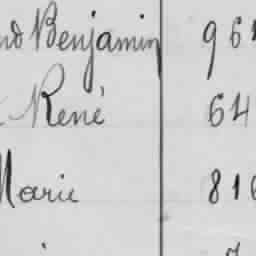 Benjamin 96
René 64
Marie 81